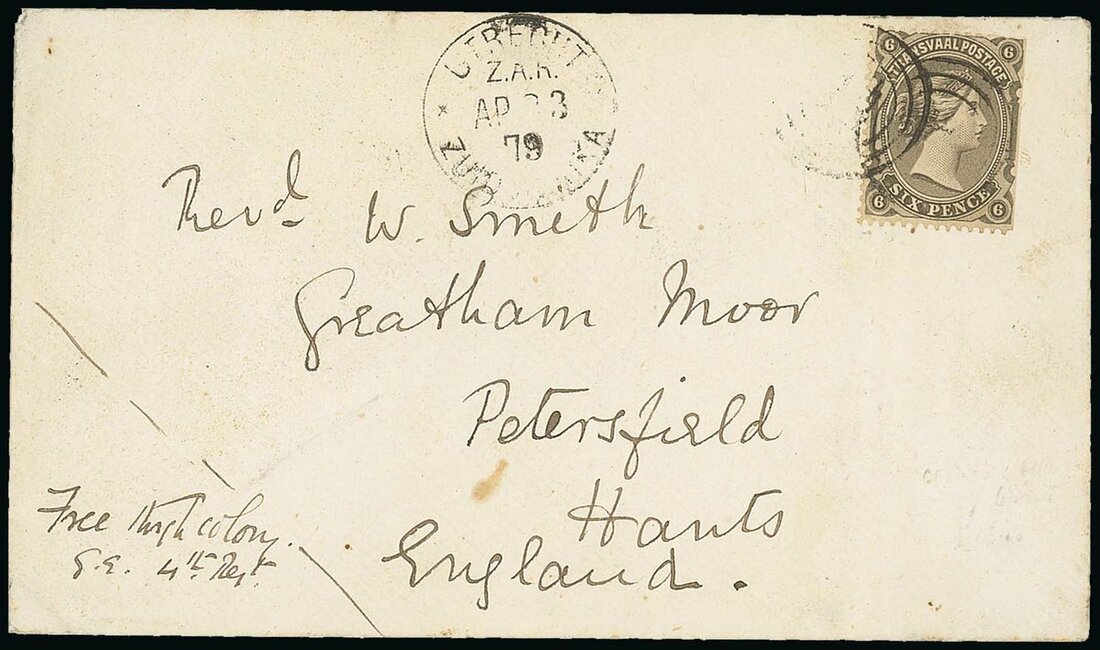 UTRECHT
Z.A.R.
AP 23
79
ZUID AFRIKA
6 TRANSVAAL POSTAGE 6
6 SIX PENCE 6
Revd. W. Smeth
Greatham Moor
Petersfield
Hants
England.
Free thrgh colony.
4th Regt.